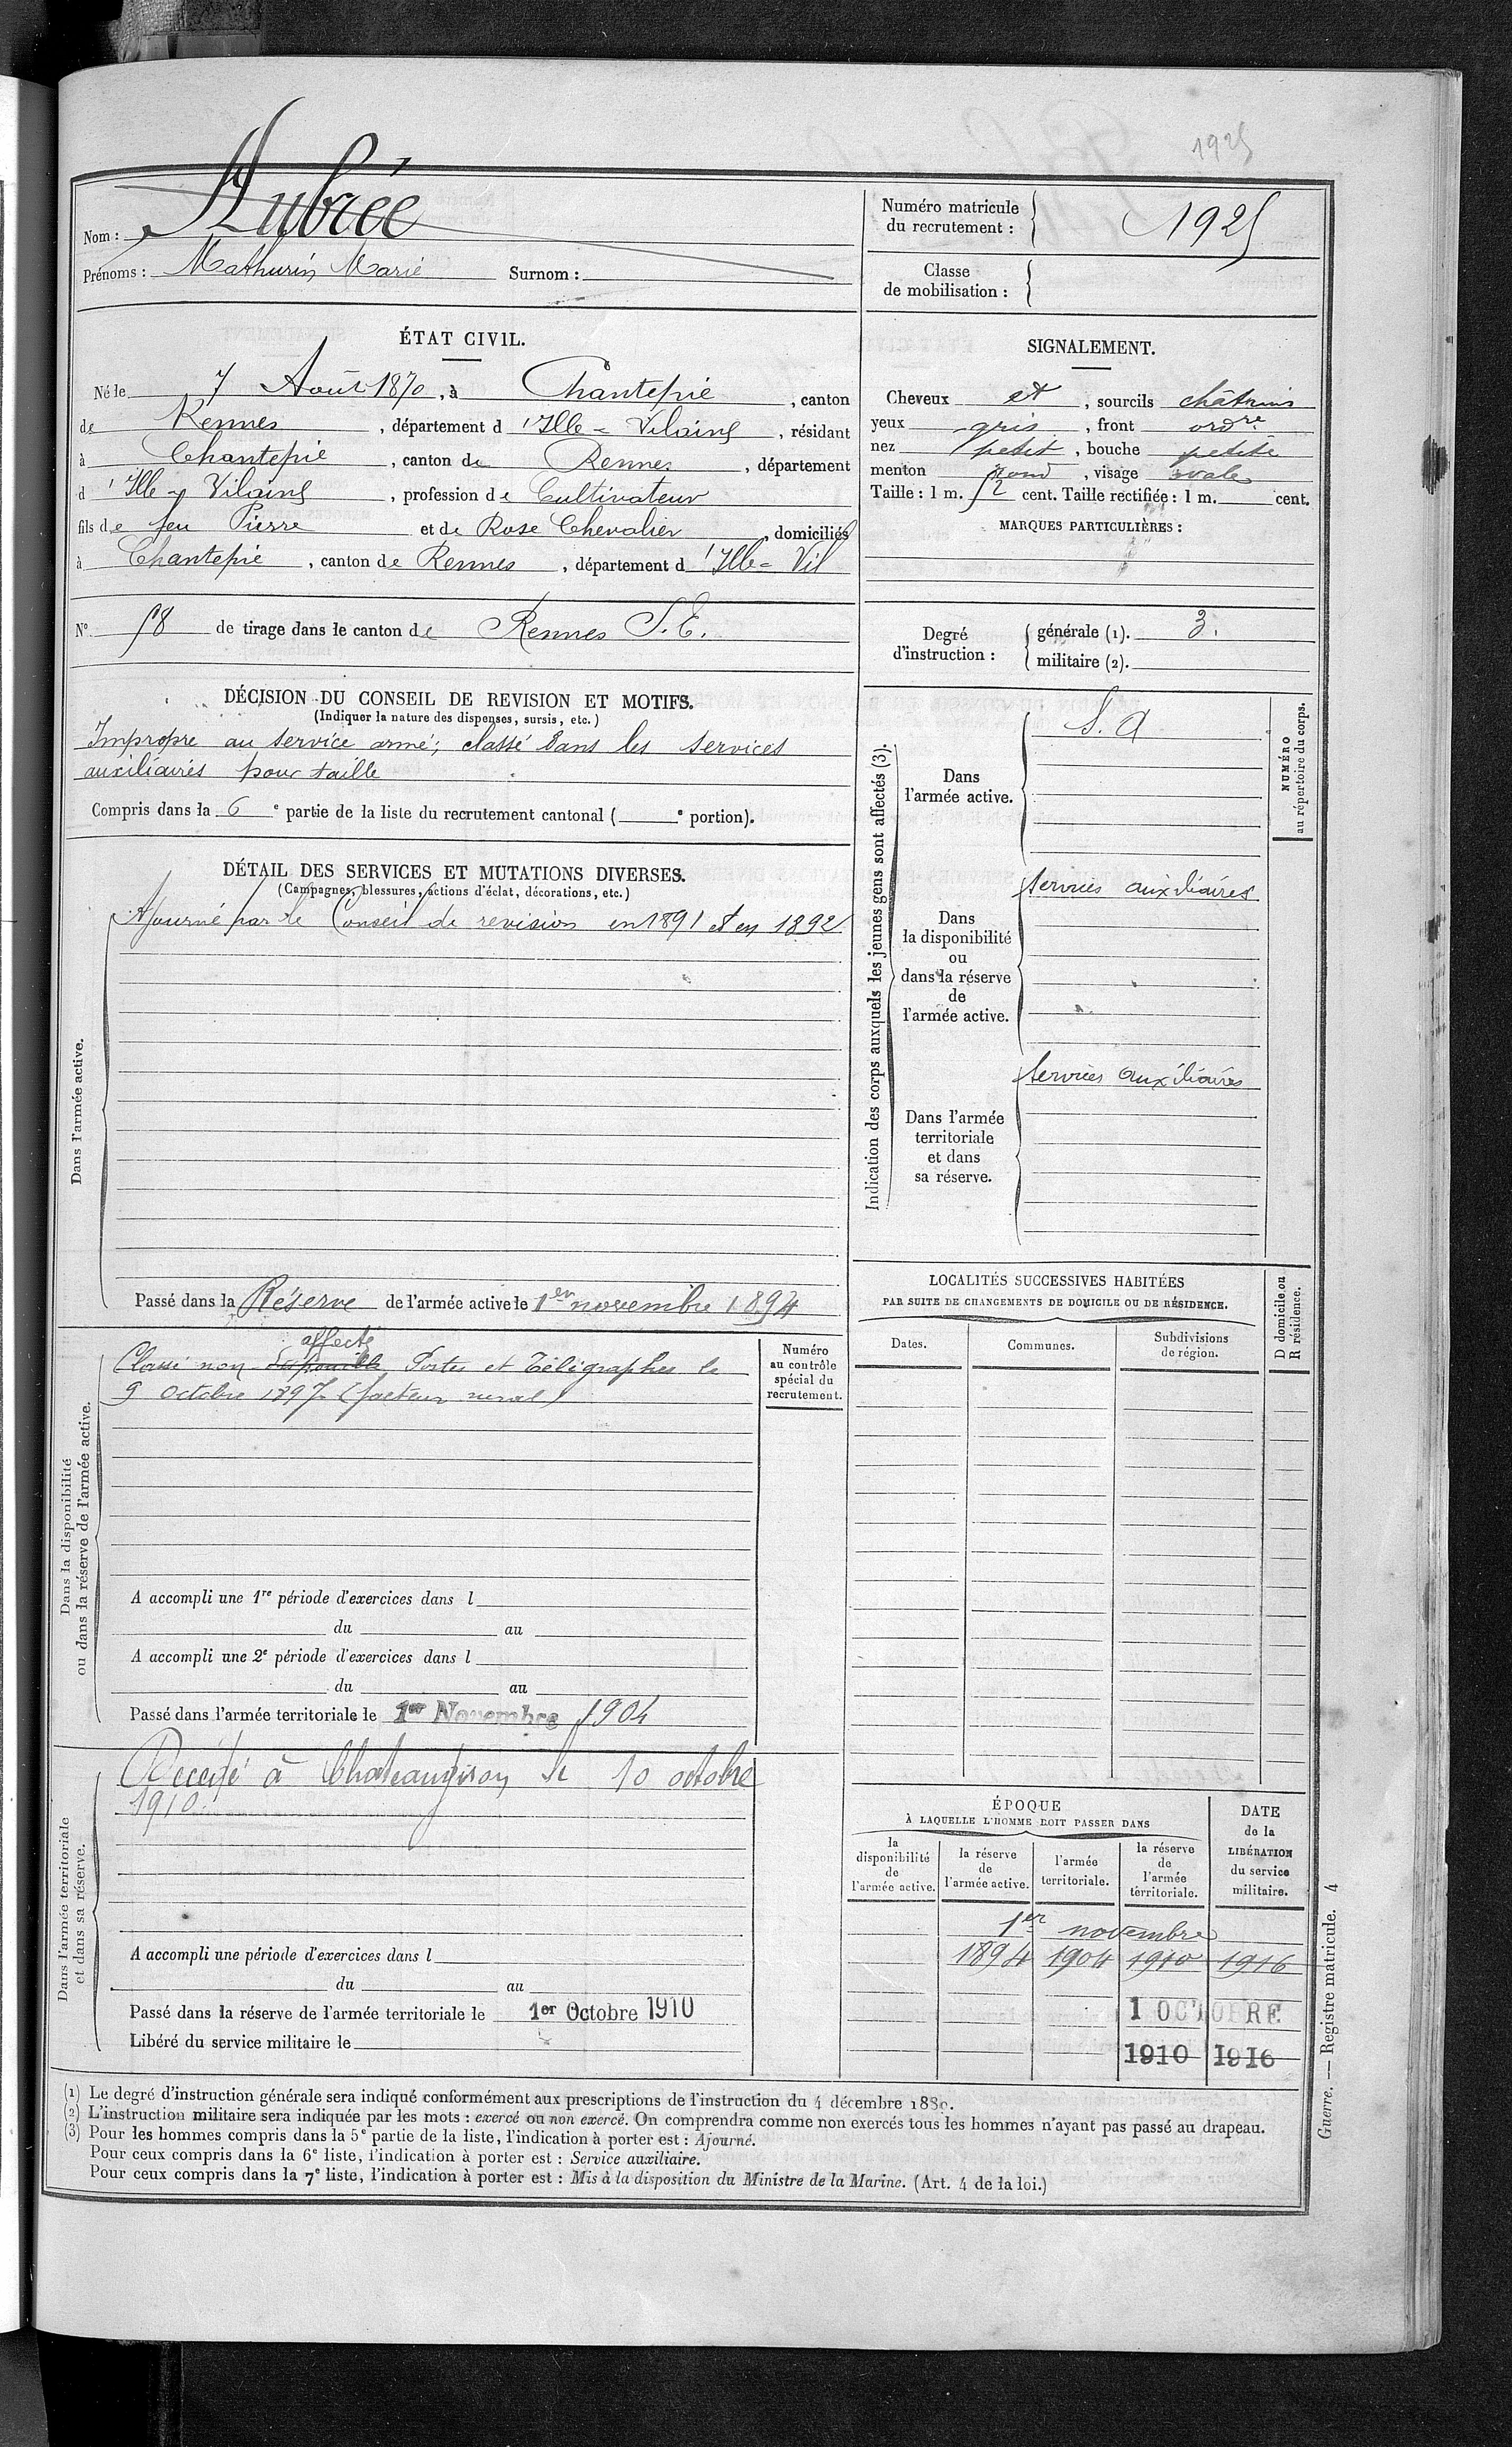 1925
Nom : Aubrée
Prénoms : Mathurin Marie Surnom :
Numéro matricule
du recrutement : 1925
Classe
de mobilisation :
ÉTAT CIVIL.
Né le 7 Août 1870, à Chantepie, canton
de Rennes, département d'Ille-&-Vilaine, résidant
à Chantepie, canton de Rennes, département
d'Ille-&-Vilaine, profession de Cultivateur
fils de feu Pierre et de Rose Chevalier, domiciliés
à Chantepie, canton de Rennes, département d'Ille-&-Vil
N° 58 de tirage dans le canton de Rennes S.E.
SIGNALEMENT.
Cheveux et, sourcils châtains
yeux gris, front ordre
nez petit, bouche petite
menton rond, visage ovale
Taille : 1 m. 52 cent. Taille rectifiée : 1 m. cent.
MARQUES PARTICULIÈRES :
Degré
d'instruction :
générale (1). 3.
militaire (2).
DÉCISION DU CONSEIL DE REVISION ET MOTIFS.
(Indiquer la nature des dispenses, sursis, etc.)
Impropre au service armé; classé dans les services
auxiliaires pour taille
Compris dans la 6e partie de la liste du recrutement cantonal ( e portion).
DÉTAIL DES SERVICES ET MUTATIONS DIVERSES.
(Campagnes, blessures, actions d'éclat, décorations, etc.)
Dans l'armée active.
Ajourné par le Conseil de revision en 1891 et en 1892
Passé dans la Réserve de l'armée active le 1er novembre 1894
Indication des corps auxquels les jeunes gens sont affectés (3).
Dans
l'armée active.
S. A
NUMÉRO
au répertoire du corps.
Dans
la disponibilité
ou
dans la réserve
de
l'armée active.
Services auxiliaires
Dans l'armée
territoriale
et dans
sa réserve.
Services auxiliaires
Dans la disponibilité
ou dans la réserve de l'armée active.
affecté
Classé non disponible Postes et Télégraphes le
9 octobre 1897 (facteur rural)
Numéro
au contrôle
spécial du
recrutement.
A accompli une 1re période d'exercices dans l
du au
A accompli une 2e période d'exercices dans l
du au
Passé dans l'armée territoriale le 1er Novembre 1904
LOCALITÉS SUCCESSIVES HABITÉES
PAR SUITE DE CHANGEMENTS DE DOMICILE OU DE RÉSIDENCE.
Dates. Communes. Subdivisions
de région.
D domicile ou
R résidence.
Dans l'armée territoriale
et dans sa réserve.
Décédé à Chateaugiron le 10 octobre
1910.
A accompli une période d'exercices dans l
du au
Passé dans la réserve de l'armée territoriale le 1er Octobre 1910
Libéré du service militaire le
ÉPOQUE
À LAQUELLE L'HOMME DOIT PASSER DANS
la
disponibilité
de
l'armée active.
la réserve
de
l'armée active.
l'armée
territoriale.
la réserve
de
l'armée
térritoriale.
DATE
de la
LIBÉRATION
du service
militaire.
1er novembre
1894 1904 1910 1916
1 OCTOBRE
1910 1916
(1) Le degré d'instruction générale sera indiqué conformément aux prescriptions de l'instruction du 4 décembre 1880.
(2) L'instruction militaire sera indiquée par les mots : exercé ou non exercé. On comprendra comme non exercés tous les hommes n'ayant pas passé au drapeau.
(3) Pour les hommes compris dans la 5e partie de la liste, l'indication à porter est : Ajourné.
Pour ceux compris dans la 6e liste, l'indication à porter est : Service auxiliaire.
Pour ceux compris dans la 7e liste, l'indication à porter est : Mis à la disposition du Ministre de la Marine. (Art. 4 de la loi.)
Guerre. — Registre matricule. 4